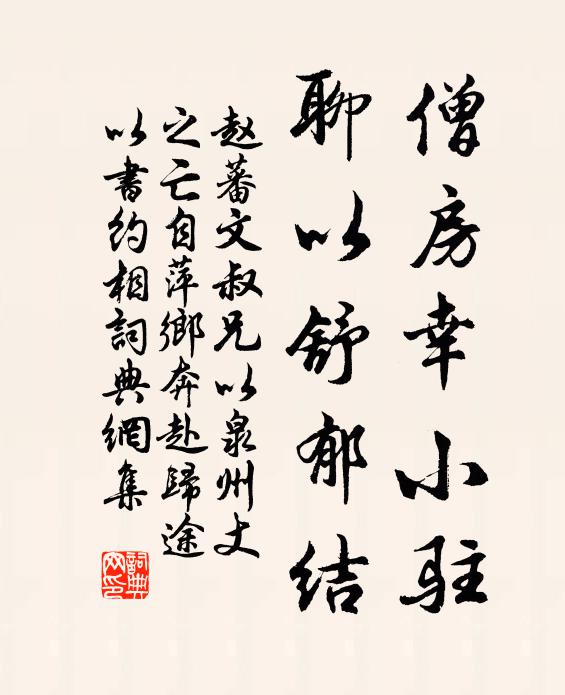 僧房幸小駐
聊以舒郁结
赵蕃文叔兄以泉州丈
之亡自萍鄉奔赴歸途
以書约相詞典網集
詞典
网印